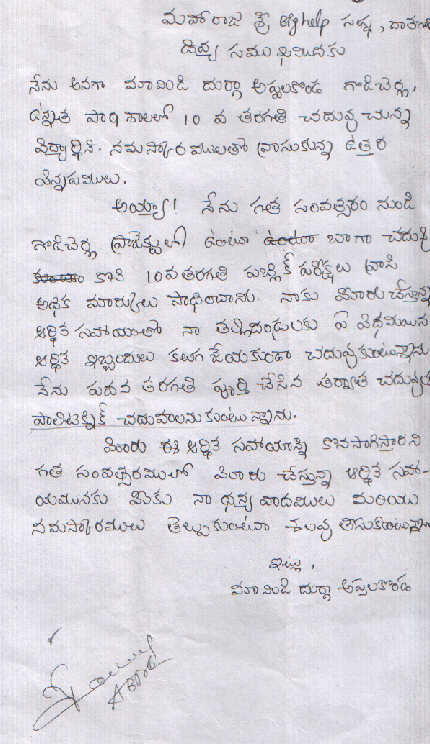 మహారాజ శ్రీ help సంస్థ,
దివ్య సముఖమునకు
నేను అనగా మామిడి దుర్గా అప్పలకొండ గొడిచెర్ల,
ఉన్నత పాఠశాలలో 10 వ తరగతి చదువుచున్న
విద్యార్థిని. నమస్కారములతో వ్రాసుకున్న ఉత్తర
విన్నపములు.
అయ్యా! నేను గత సంవత్సరం నుండి
గొడిచెర్ల ప్రాజెక్టులో ఉంటూ బాగా చదువు
కొని 10వ తరగతి పబ్లిక్ పరీక్షలు వ్రాసి
అధిక మార్కులు సాధించాను. నాకు మీరు చేస్తున్న
ఆర్థిక సహాయంతో నా తల్లిదండ్రులకు ఏ విధమయిన
ఆర్థిక ఇబ్బందులు కలుగ జేయకుండా చదువుకుంటున్నాను
నేను పదవ తరగతి పూర్తి చేసిన తర్వాత చదువు
పాలిటెక్నిక్ చదువాలనుకుంటున్నాను.
మీరు ఈ ఆర్థిక సహాయాన్ని కొనసాగిస్తారని
గత సంవత్సరములో మీరు చేస్తున్న ఆర్థిక సహా-
యమునకు మీకు నా ధన్యవాదములు మరియు
నమస్కారములు తెల్పుకుంటూ సెలవు తీసుకుంటున్నాను
ఇట్లు,
మామిడి దుర్గా అప్పలకొండ